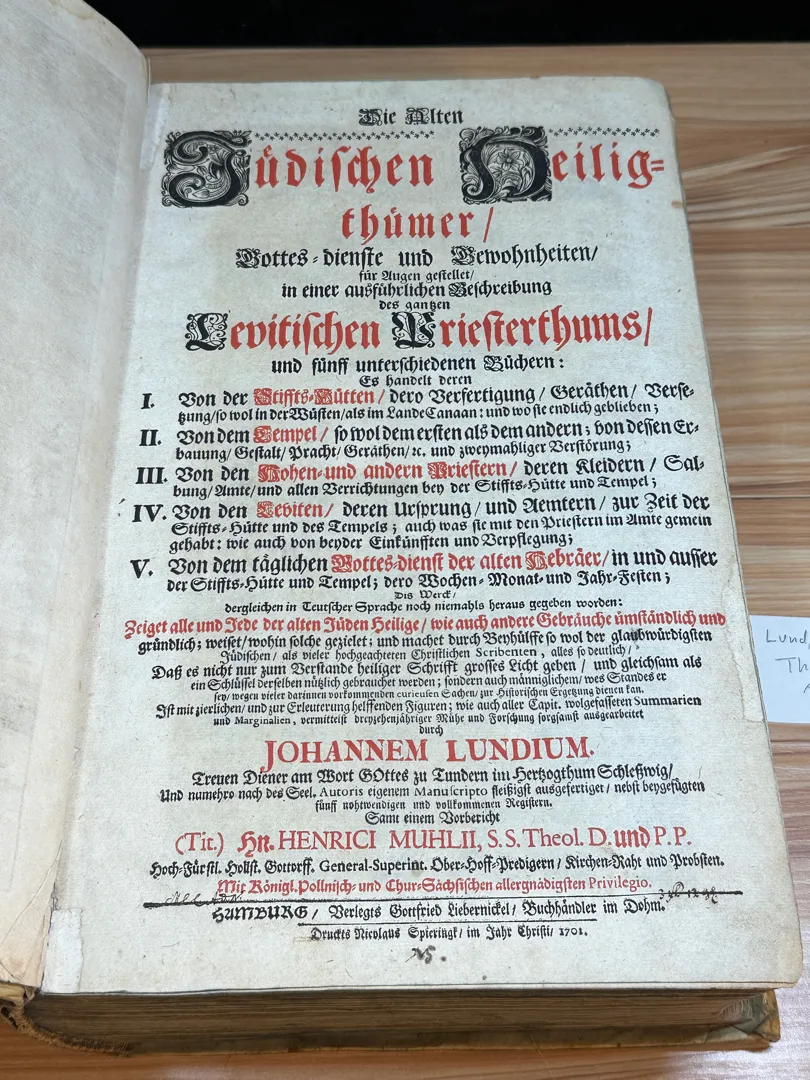 Die Alten
Jüdischen Heilig=
thümer/
Gottes=dienste und Gewohnheiten/
für Augen gestellet/
in einer ausführlichen Beschreibung
des gantzen
Levitischen Priesterthums/
und fünff unterschiedenen Büchern:
Es handelt deren
I. Von der Stiffts-Hütten/ dero Verfertigung/ Geräthen/ Verse-
tzung/ so wol in der Wüsten/ als im Lande Canaan: und wo sie endlich geblieben;
II. Von dem Tempel/ so wol dem ersten als dem andern; von dessen Er-
bauung/ Gestalt/ Pracht/ Geräthen/ &c. und zweymahliger Verstörung;
III. Von den Hohen-und andern Priestern/ deren Kleidern/ Sal-
bung/ Amte/ und allen Verrichtungen bey der Stiffts-Hütte und Tempel;
IV. Von den Leviten/ deren Ursprung/ und Aemtern/ zur Zeit der
Stiffts-Hütte und des Tempels; auch was sie mit den Priestern im Amte gemein
gehabt: wie auch von beyder Einkünfften und Verpflegung;
V. Von dem täglichen Gottes-dienst der alten Hebräer/ in und ausser
der Stiffts-Hütte und Tempel; dero Wochen-Monat-und Jahr-Festen;
Dis Werck/
dergleichen in Teutscher Sprache noch niemahls heraus gegeben worden:
Zeiget alle und Jede der alten Jüden Heilige/ wie auch andere Gebräuche ümständlich und
gründlich; weiset/ wohin solche gezielet; und machet durch Beyhülffe so wol der glaubwürdigsten
Jüdischen/ als vieler hochgeachteten Christlichen Scribenten, alles so deutlich/
Daß es nicht nur zum Verstande heiliger Schrifft grosses Licht geben/ und gleichsam als
ein Schlüssel derselben nützlich gebrauchet werden; sondern auch männiglichem/ wes Standes er
sey/ wegen vieler darinnen vorkommenden curieusen Sachen/ zur Historischen Ergetzung dienen kan.
Ist mit zierlichen/ und zur Erleuterung helffenden Figuren; wie auch aller Capit. wolgefasseten Summarien
und Marginalien, vermittelst dreyzehenjähriger Mühe und Forschung sorgsamst ausgearbeitet
durch
JOHANNEM LUNDIUM.
Treuen Diener am Wort GOttes zu Tundern im Hertzogthum Schleßwig/
Und numehro nach des Seel. Autoris eigenem Manuscripto fleißigst ausgefertiget/ nebst beygefügten
fünff nohtwendigen und vollkommenen Registern.
Samt einem Vorbericht
(Tit.) Hn. HENRICI MUHLII, S. S. Theol. D. und P. P.
Hoch-Fürstl. Hollst. Gottorff. General-Superint. Ober-Hoff-Predigern/ Kirchen-Raht und Probsten.
Mit Königl. Pollnisch- und Chur-Sächsischen allergnädigsten Privilegio.
HAMBURG/ Verlegts Gottfried Liebernickel/ Buchhändler im Dohm.
Druckts Nicolaus Spieringk/ im Jahr Christi/ 1701.
Lund,
Th